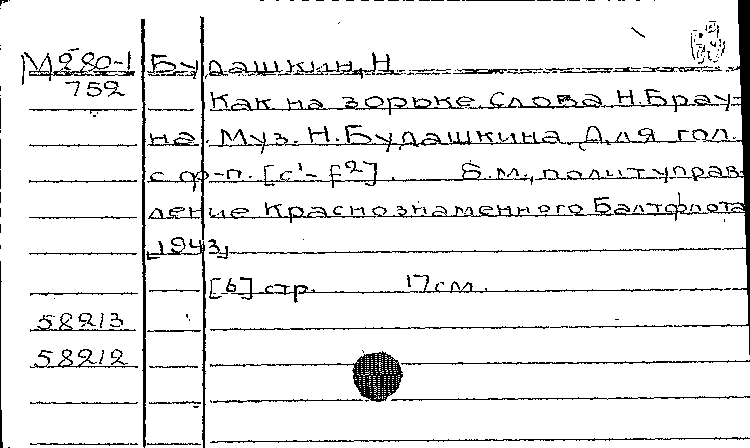 М280-1 Будашкин, Н
752
Как на зорьке. Слова Н. Брау-
на. Муз. Н. Будашкина. Для гол.
с ф-п. [c¹-f²]. Б.м., политуправ-
ление Краснознаменного Балтфлота
1943,
[6] стр. 17см.
58213
58212